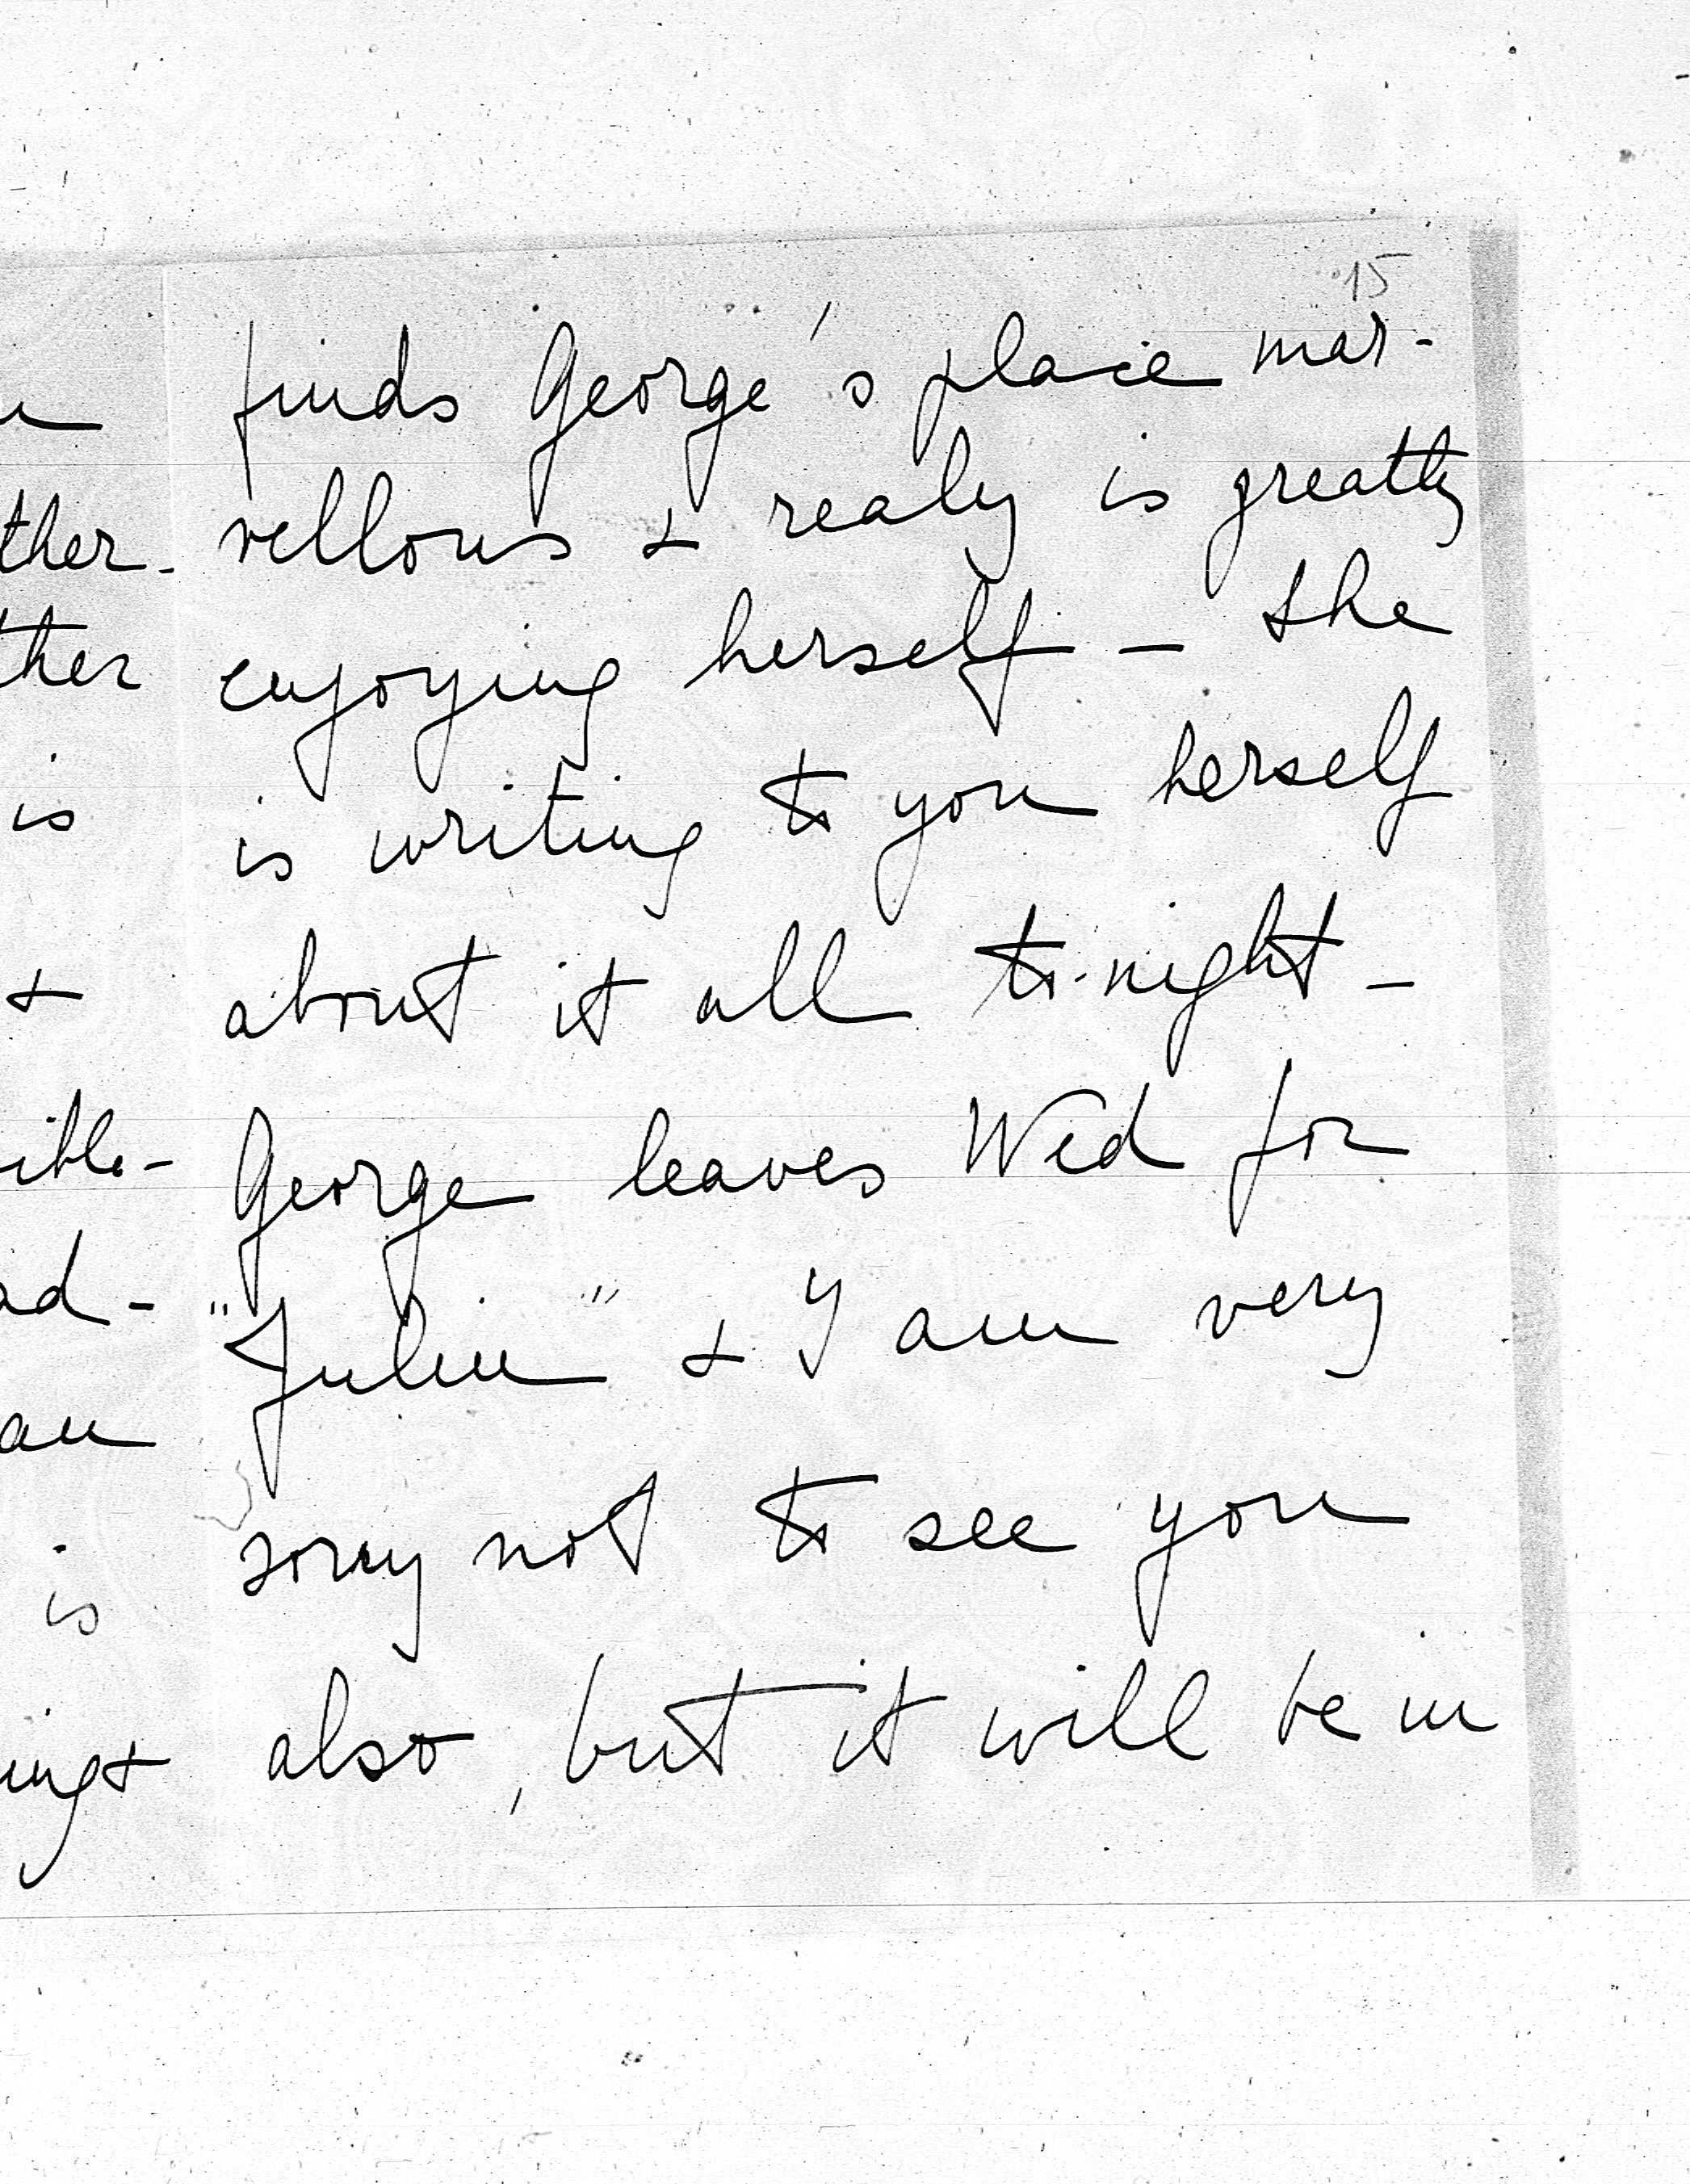 15
finds George's place mar-
vellous & realy is greatly
enjoying herself – she
is writing to you herself
about it all to-night –
George leaves Wed for
"Julin" & I am very
sorry not to see you
also, but it will be in
ther.
ther
is
&
ible-
ad-
an
is
ing &